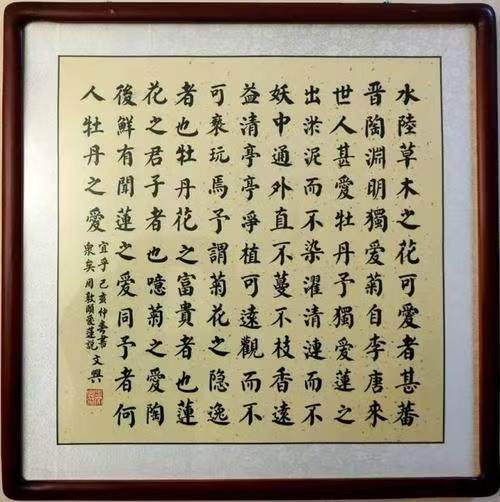 水陸草木之花可愛者甚蕃
晉陶淵明獨愛菊自李唐來
世人甚愛牡丹予獨愛蓮之
出淤泥而不染濯清漣而不
妖中通外直不蔓不枝香遠
益清亭亭凈植可遠觀而不
可褻玩焉予謂菊花之隐逸
者也牡丹花之富貴者也蓮
花之君子者也噫菊之愛陶
後鮮有聞蓮之愛同予者何
人牡丹之愛
宜乎 己亥仲春書
衆矣 周敦頤愛蓮説
文興